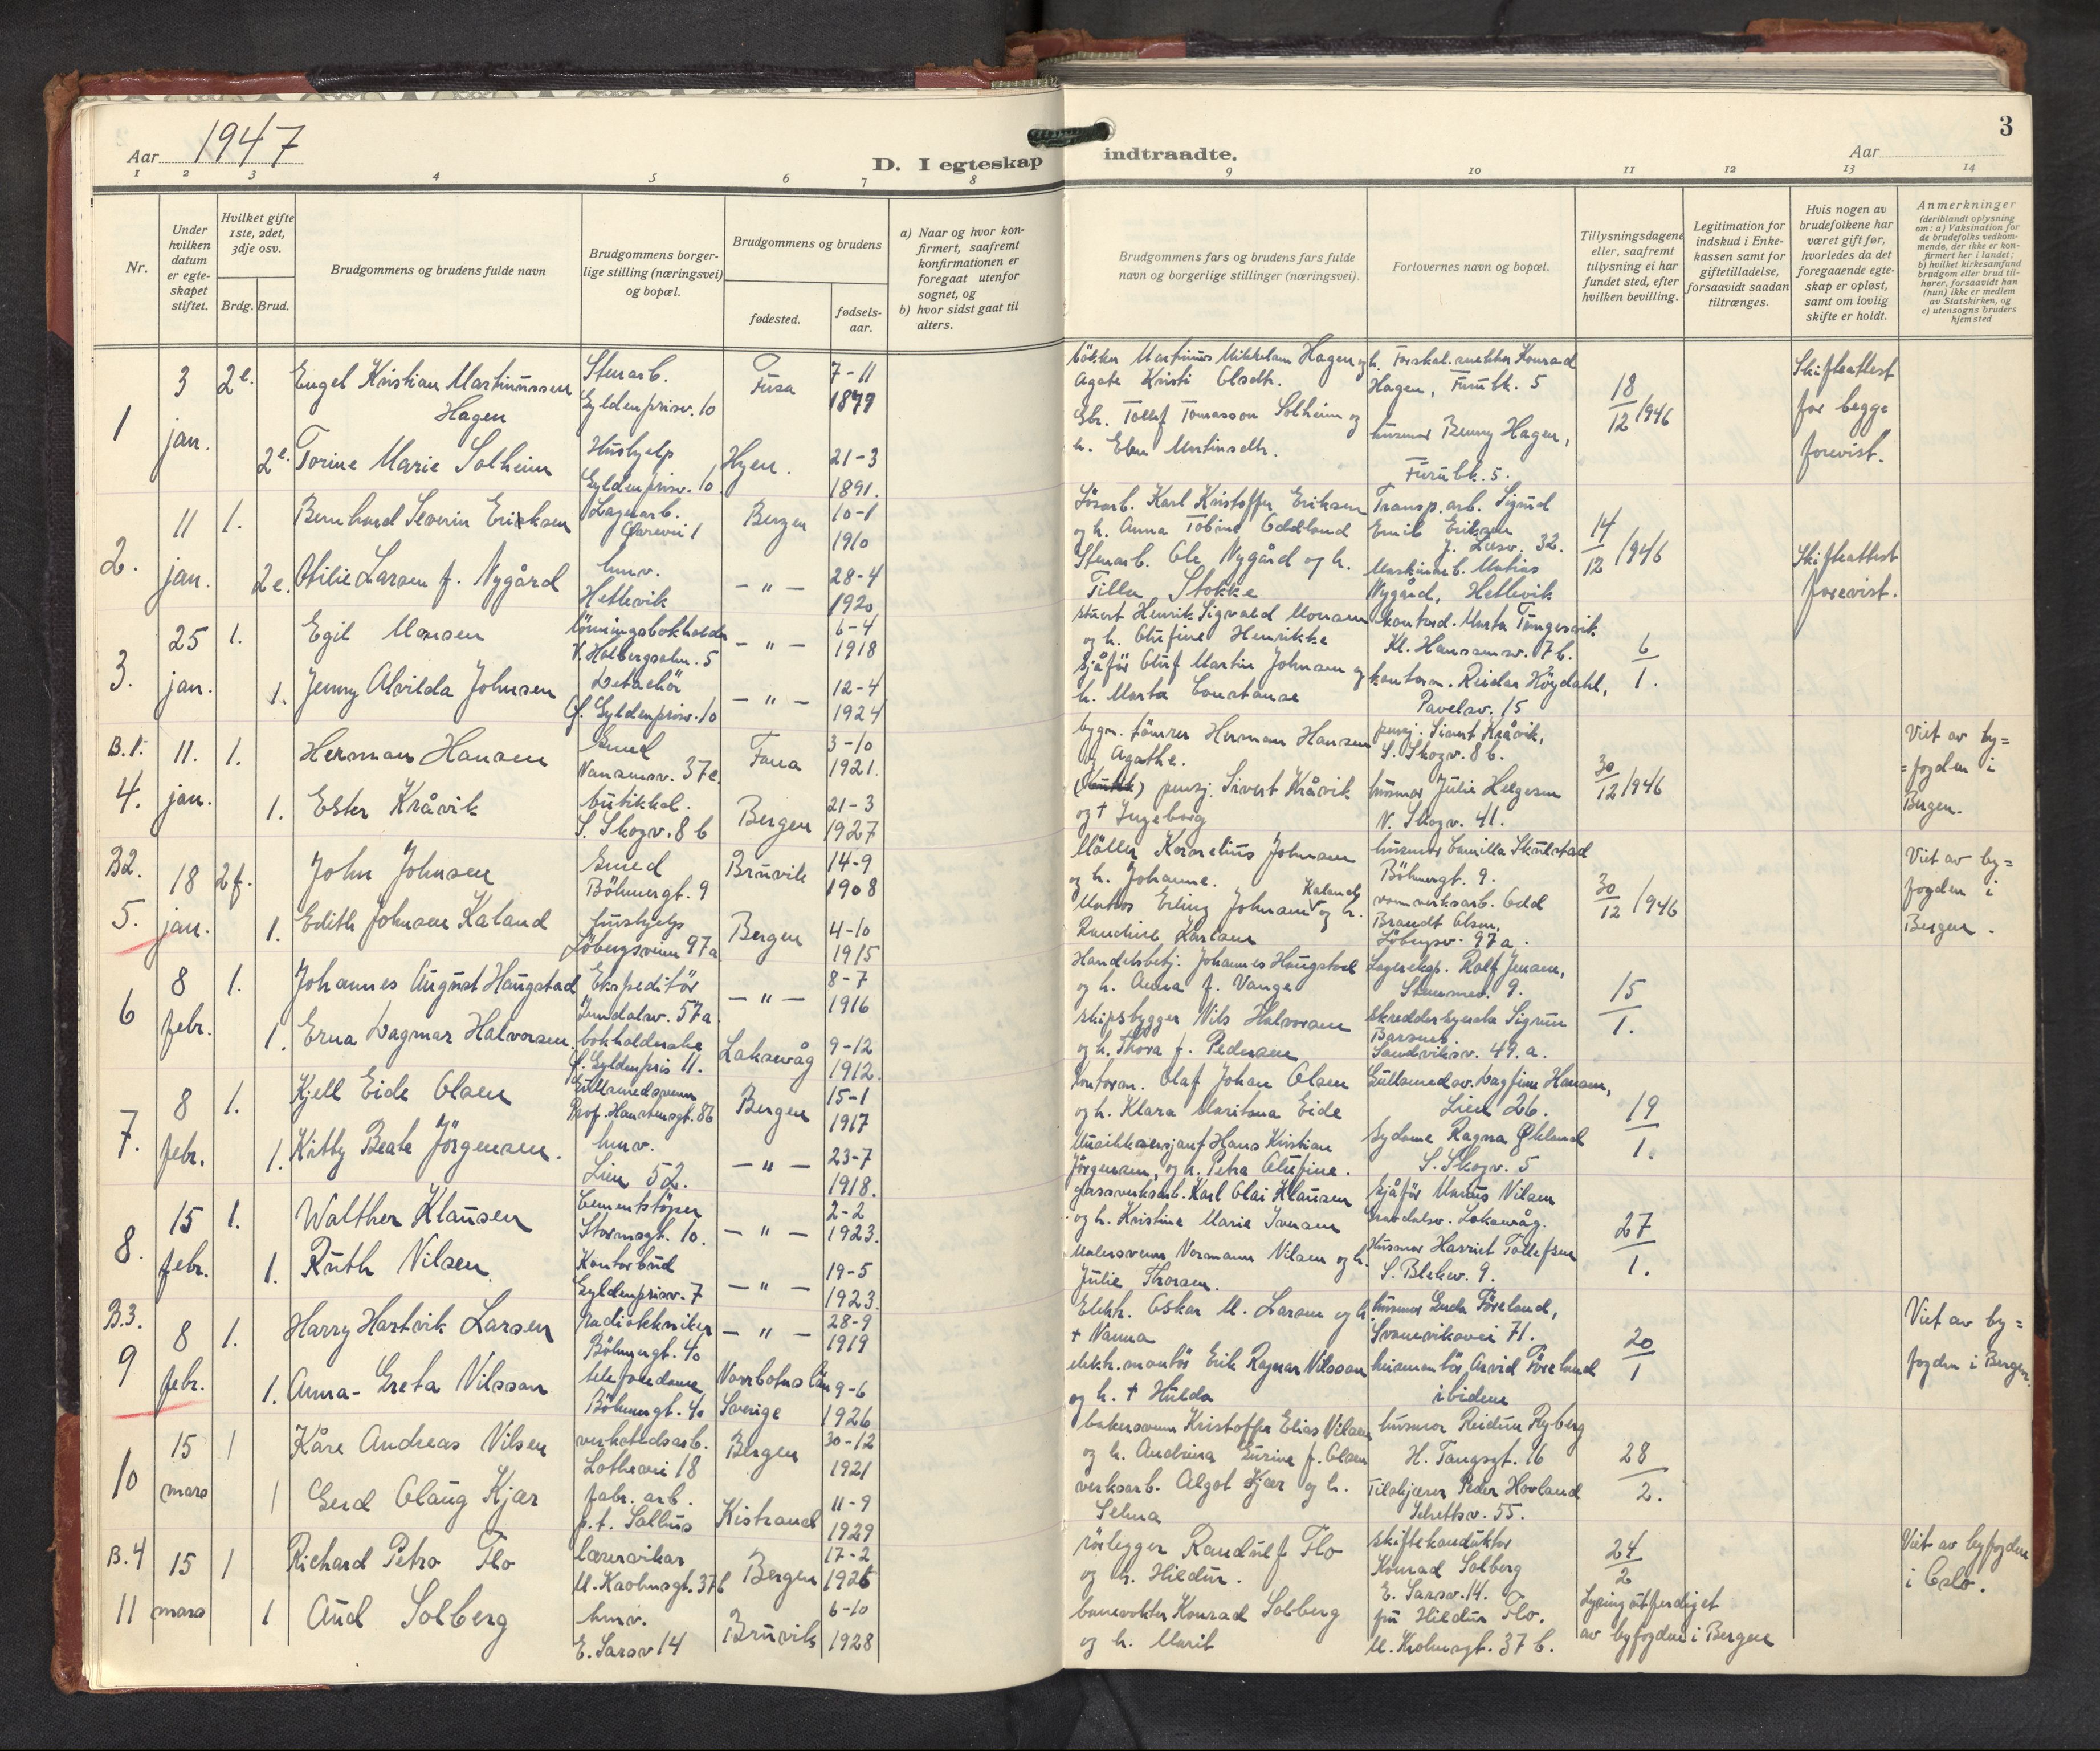 1947
Aar
D. I egteskap
1 2 3 4 5 6 7 8
Nr.
Under hvilken datum er egteskapet stiftet.
Hvilket gifte 1ste, 2det, 3dje osv.
Brdg. Brud.
Brudgommens og brudens fulde navn
Brudgommens borgerlige stilling (næringsvei) og bopæl.
Brudgommens og brudens
fødested.
fødselsaar.
a) Naar og hvor konfirmert, saafremt konfirmationen er foregaat utenfor sognet, og
b) hvor sidst gaat til alters.
1 3 jan. 2e. Engel Kristian Martinussen Hagen Stenarb. Gyldenprisv. 10 Fusa 7-11 1879
2e. Torine Marie Solheim Hushjelp Gyldenprisv. 10 Hyen. 21-3 1891.
2. 11 jan. 1. Bernhard Severin Eriksen Lagerarb. 1 Bergen 10-1 1910
2e. Otilie Larsen f. Nygård hmv. Hetlevik — " — 28-4 1920
3. 25 jan. 1. Egil Monsen lönningsbokholder V. Holbergsalm. 5 — " — 6-4 1918
1. Jenny Alvilda Johnsen Detachör Gyldenprisv. 10 — " — 12-4 1924
B.1. 4. 11. jan. 1. Herman Hansen Smed Nansensv. 37e. Fana 3-10 1921.
1. Ester Kråvik butikkd. S. Skogv. 8 b Bergen 21-3 1927
B2. 5. 18 jan. 2f. John Johnsen Smed Böhmergt. 9 Bruvik 14-9 1908
1. Edith Johnsen Kaland hushjelp Löbergsveien 97a Bergen 4-10 1915
6 8 febr. 1. Johannes August Haugstad Ekspeditör 57a — " — 8-7 1916
1. Erna Dagmar Halvorsen bokholderske Gyldenpris 11. Laksevåg 9-12 1912.
7. 8 febr. 1. Kjell Eide Olsen Gullsmedsvenn Prof. Hansteensgt. 86 Bergen 15-1 1917
1. Kitty Beate Jörgensen. hmv. Lien 52. — " — 23-7 1918.
8. 15 febr. 1. Walther Klausen Cementstöper Stormsgt. 10. — " — 2-2 1923.
1. Ruth Nilsen Kontorbud Gyldenprisv. 7 — " — 19-5 1923.
B.3. 9 8 febr. 1. Harry Hartvik Larsen radiotekniker Böhmergt. 40 — " — 28-9 1919
1. Anna-Greta Nilsson telefondame Böhmergt. 40 Norrbotns län Sverige 9-6 1926
10 15 mars 1 Kåre Andreas Nilsen verkstedsarb. Lotheveien 18 Bergen 30-12 1921
1 Gerd Olaug Kjær fabr. arb. p.t. Solhus Kistrand 11-9 1929
B.4 11 15 mars 1 Richard Petro Flo lærervikar M. Krohnsgt. 37b Bergen 17-2 1926
1 Aud Solberg hmv. E. Sarsv 14 Bruvik 6-10 1928
3
indtraadte.
Aar
9 10 11 12 13 14
Brudgommens fars og brudens fars fulde navn og borgerlige stillinger (næringsvei).
Forlovernes navn og bopæl.
Tillysningsdagene eller, saafremt tillysning ei har fundet sted, efter hvilken bevilling.
Legitimation for indskud i Enkekassen samt for giftetilladelse, forsaavidt saadan tiltrænges.
Hvis nogen av brudefolkene har været gift før, hvorledes da det foregaaende egteskap er opløst, samt om lovlig skifte er holdt.
Anmerkninger (deriblandt oplysning om: a) Vaksination for de brudefolks vedkommende, der ikke er konfirmert her i landet; b) hvilket kirkesamfund brudgom eller brud tilhører, forsaavidt han (hun) ikke er medlem av Statskirken, og c) utensogns bruders hjemsted
Martinus Mikkelsen Hagen og
Agate Kristi Olsdtr.
h. Forskal. snekker Konrad
Hagen, Furubk. 5
18/12 1946
Skifteattest
for begge
forevist.
Gbr. Tollef Tomasson Solheim og
h. Elen Martinsdtr.
husmor Benny Hagen,
Furubk. 5.
Lösarb. Karl Kristoffer Eriksen
og h. Anna Tobine Oddland
Transp. arb. Sigurd
Emil Eriksen
J. Liesv. 32.
14/12 1946
Stenarb. Ole Nygård og h.
Tilla Stokke
Maskinarb. Matias
Nygård, Hetlevik
Skifteattest
forevist.
stuert Henrik Sigvald Monsen
og h. Olufine Henrikke
kontord. Marta Tangesvik
Kl. Hansensv. 7 b.
6/1.
sjåför Oluf Martin Johnsen og
h. Marta Constanse
kontorm. Reidar Höydahl,
Pavelsv. 15
bygn. tömrer Herman Hansen
og Agathe.
pensj. Sivert Kråvik,
S. Skogv. 8 b.
30/12 1946
Viet av by=
=fogden i
Bergen.
pensj. Sivert Kråvik
og † Ingeborg
husmor Julie Helgesen
N. Skogv. 41.
Möller Kornelius Johnsen
og h. Johanne.
husmor Camilla Skulstad
Böhmergt. 9.
30/12 1946
Viet av by=
fogden i
Bergen.
Matros Erling Johnsen Kaland og h.
Raudine Karlsen
vannverksarb. Odd
Brandt Olsen,
Löbergsv. 97a.
Handelsbetj. Johannes Haugstad
og h. Anna f. Vange
Lagereksp. Rolf Jensen,
9.
15/1.
skipsbygger Nils Halvorsen
og h. Thora f. Pedersen
skreddersyerske Sigrun
Barsnes
Sandviksv. 49. a.
Kontorm. Olaf Johan Olsen
og h. Klara Maritana Eide
Gullsmedsv. Dagfinn Hansen,
Lien 26.
19/1.
Musikksersjant Hans Kristian
Jörgensen, og h. Petra Olufine.
Sydame Ragna Ökland
S. Skogv. 5
gassverksarb. Karl Olai Klausen
og h. Kristine Marie Iversen
sjåför Nilsen
Laksevåg.
27/1.
Malersvenn Normann Nilsen og h.
Julie Thorsen.
Husmor Harriet Tollefsen
S. Blekev. 9.
Elektr. Oskar M. Larsen og h.
† Nanna
husmor Föreland,
Svaneviksvei 71.
20/1
Viet av by=
fogden i Bergen.
elektr. montör Erik Ragnar Nilsson
og h. † Hulda
heismontör Arvid Föreland
ibidem
bakersvenn Kristoffer Elias Nilsen
og h. Andrina Gurine f. Olsen
husmor Reidun Ryberg
H. Tangsgt. 16
28/2.
verksarb. Algot Kjær og h.
Selma
Tilskjærer Peder Hovland
55.
rörlegger Randulf Flo
og h. Hildur.
skiftekonduktör
Konrad Solberg
E. Sarsv. 14.
24/2
Lysing utferdiget
av byfogden i Bergen
Viet av byfogden
i Oslo.
banevokter Konrad Solberg
og h. Marit
fru Hildur Flo.
M. Krohnsgt. 37 b.